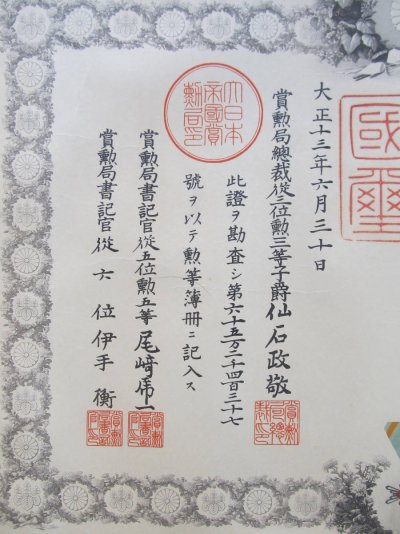 大正十三年六月三十日
國璽
賞勲局總裁從三位勲三等子爵仙石政敬
此證ヲ勘査シ第六十五万二千四百三十七
號ヲ以テ勲等簿冊ニ記入ス
大日本帝國賞勲局印
賞勲局書記官從五位勲五等尾﨑
賞勲局書記官從六位伊手衡